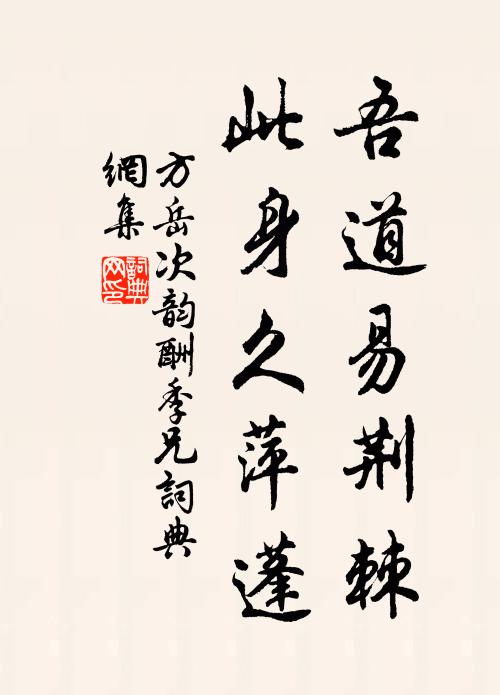 吾道易荆棘
此身久萍蓬
方岳次韵酬季兄詞典
網集
詞典
网印